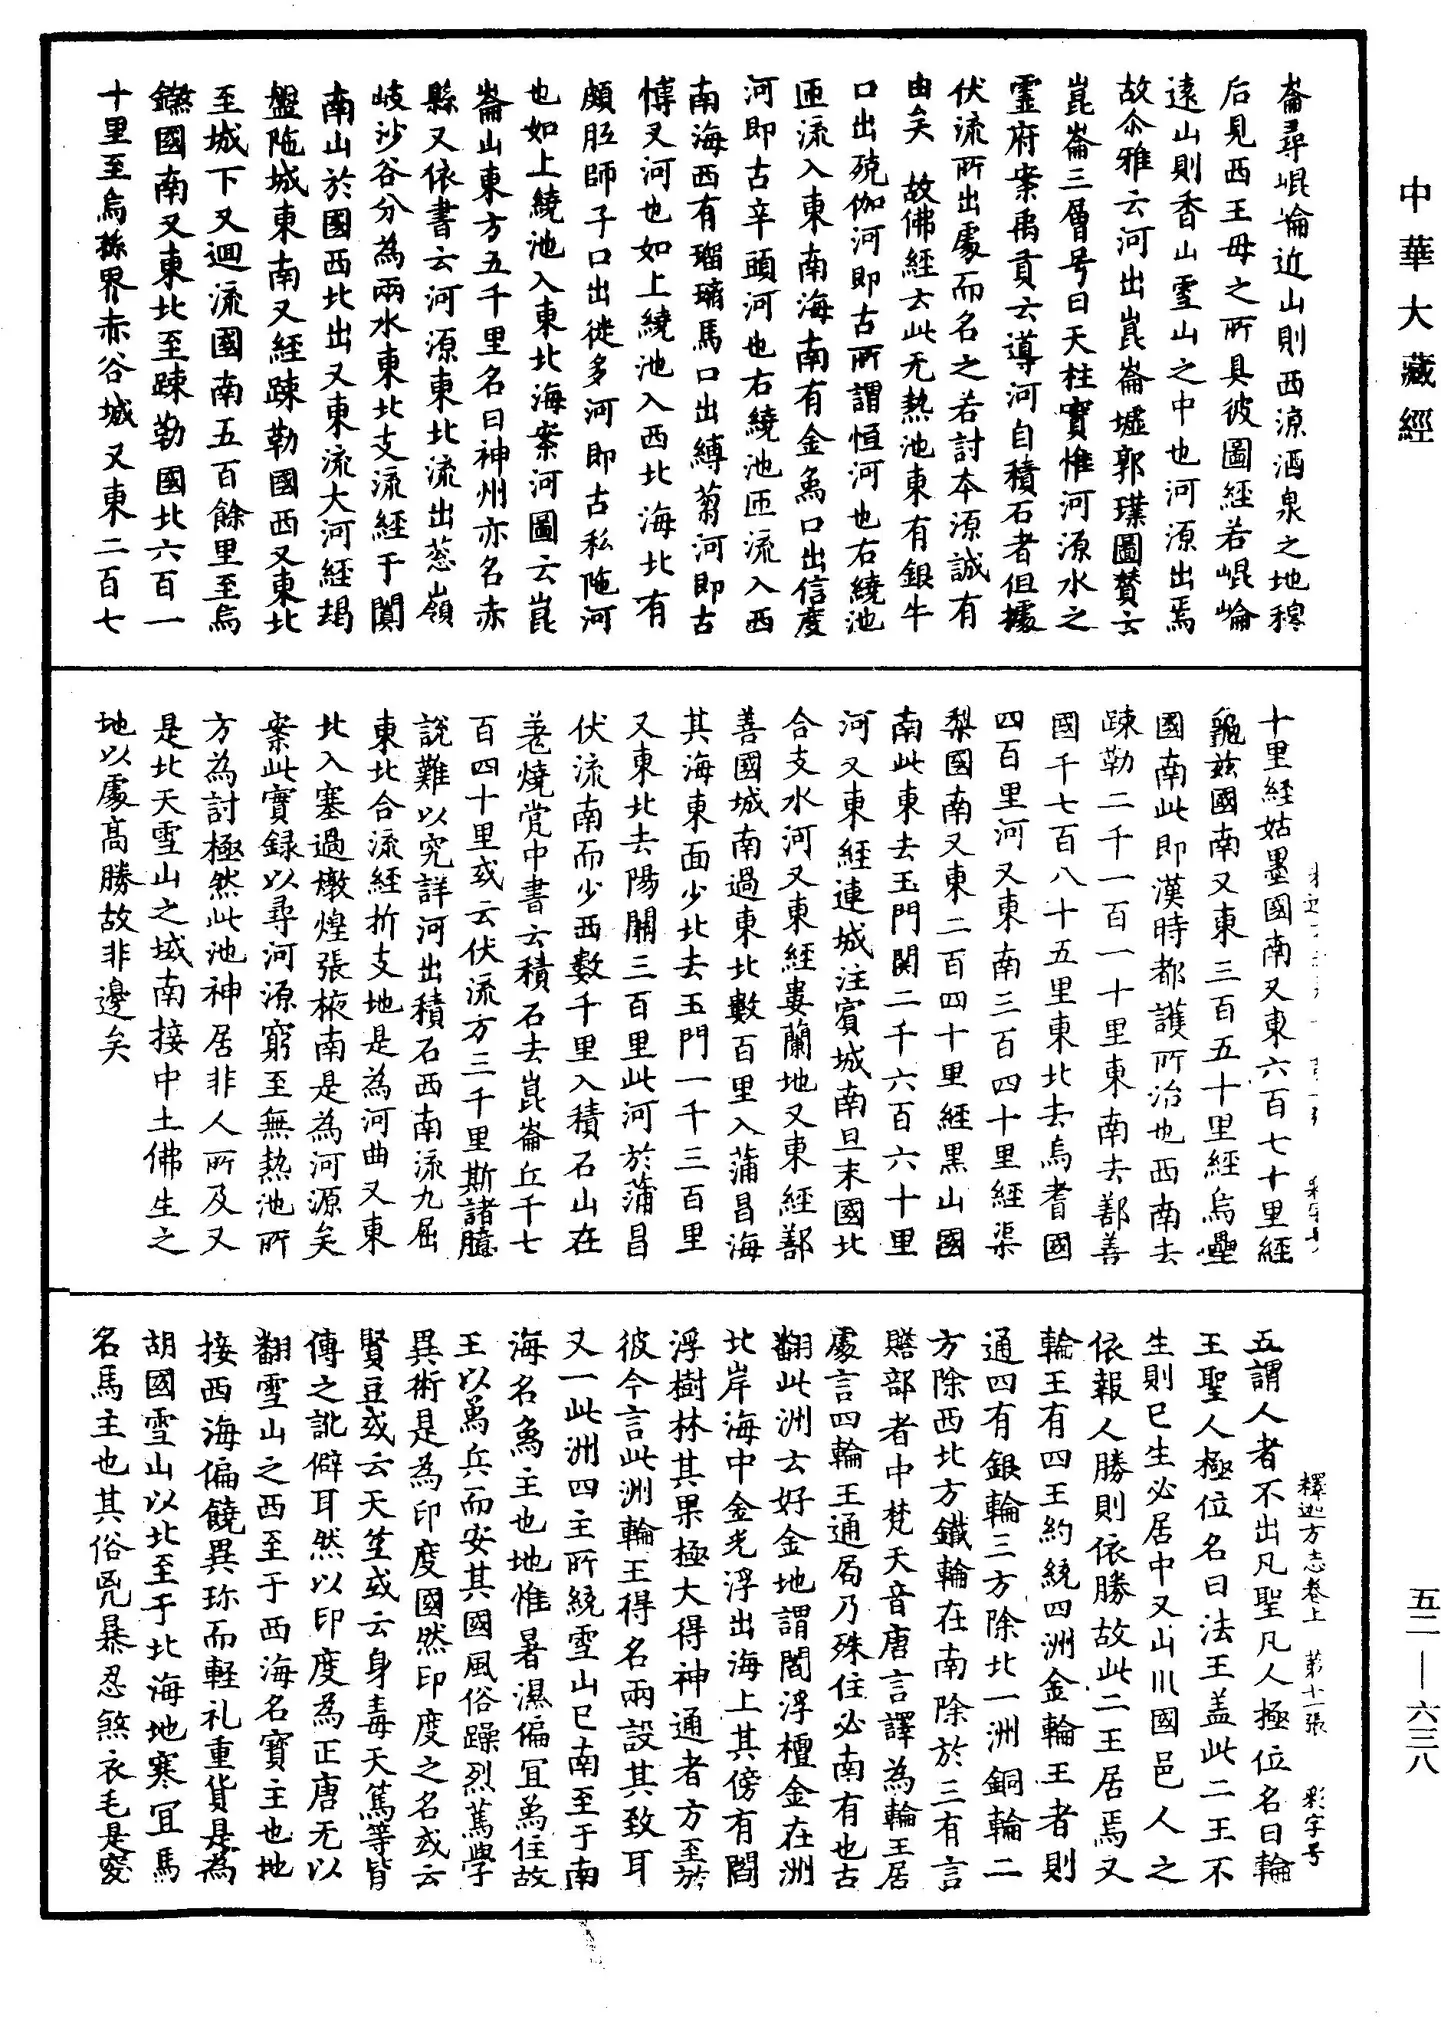 中華大藏經
崙尋崐崘近山則西涼酒泉之地穆
后見西王母之所具彼圖經若崐崘
遠山則香山雪山之中也河源出焉
故尒雅云河出崑崙墟郭璞圖贊云
崑崙三層号曰天柱實惟河源水之
靈府案禹貢云導河自積石者但據
伏流所出處而名之若討本源誠有
由矣 故佛經云此无熱池東有銀牛
口出殑伽河即古所謂恒河也右繞池
匝流入東南海南有金象口出信度
河即古辛頭河也右繞池匝流入西
南海西有瑠璃馬口出縛芻河即古
博叉河也如上繞池入西北海北有
頗胝師子口出徙多河即古私陁河
也如上繞池入東北海案河圖云崑
崙山東方五千里名曰神州亦名赤
縣又依書云河源東北流出葱嶺
岐沙谷分為兩水東北支流經于闐
南山於國西北出又東流大河經朅
盤陁城東南又經踈勒國西又東北
至城下又迴流國南五百餘里至烏
鎩國南又東北至踈勒國北六百一
十里至烏孫界赤谷城又東二百七
十里経姑墨國南又東六百七十里經
龜玆國南又東三百五十里經烏壘
國南此即漢時都護所治也西南去
踈勒二千一百一十里東南去鄯善
國千七百八十五里東北去烏耆國
四百里河又東南三百四十里經渠
梨國南又東二百四十里經黒山國
南此東去玉門関二千六百六十里
河又東經連城注賔城南旦末國北
合支水河又東經婁蘭地又東經鄯
善國城南過東北數百里入蒲昌海
其海東面少北去玉門一千三百里
又東北去陽關三百里此河於蒲昌
伏流南而少西數千里入積石山在
羗燒瓽中書云積石去崑崙丘千七
百四十里或云伏流方三千里斯諸臆
說難以究詳河出積石西南流九屈
東北合流經析支地是為河曲又東
北入塞過燉煌張掖南是為河源矣
案此實録以尋河源窮至無熱池所
方為討極然此池神居非人所及又
是北天雪山之域南接中土佛生之
地以處高勝故非邊矣
釋迦方志卷上 第十一張 彩字号
五謂人者不出凡聖凡人極位名曰輪
王聖人極位名曰法王盖此二王不
生則已生必居中又山川國邑人之
依報人勝則依勝故此二王居焉又
輪王有四王約統四洲金輪王者則
通四有銀輪三方除北一洲銅輪二
方除西北方鐵輪在南除於三有言
贍部者中梵天音唐言譯為輪王居
處言四輪王通局乃殊住必南有也古
翻此洲云好金地謂閻浮檀金在洲
北岸海中金光浮出海上其傍有閻
浮樹林其果極大得神通者方至於
彼今言此洲輪王得名兩設其致耳
又一此洲四主所統雪山已南至于南
海名象主也地惟暑濕偏冝象住故
王以象兵而安其國風俗躁烈篤學
異術是為印度國然印度之名或云
賢豆或云天笁或云身毒天篤等皆
傳之訛僻耳然以印度為正唐无以
翻雪山之西至于西海名寳主也地
接西海偏饒異珎而軽礼重貨是為
胡國雪山以北至于北海地寒冝馬
名馬主也其俗兇暴忍煞衣毛是突
五二—六三八